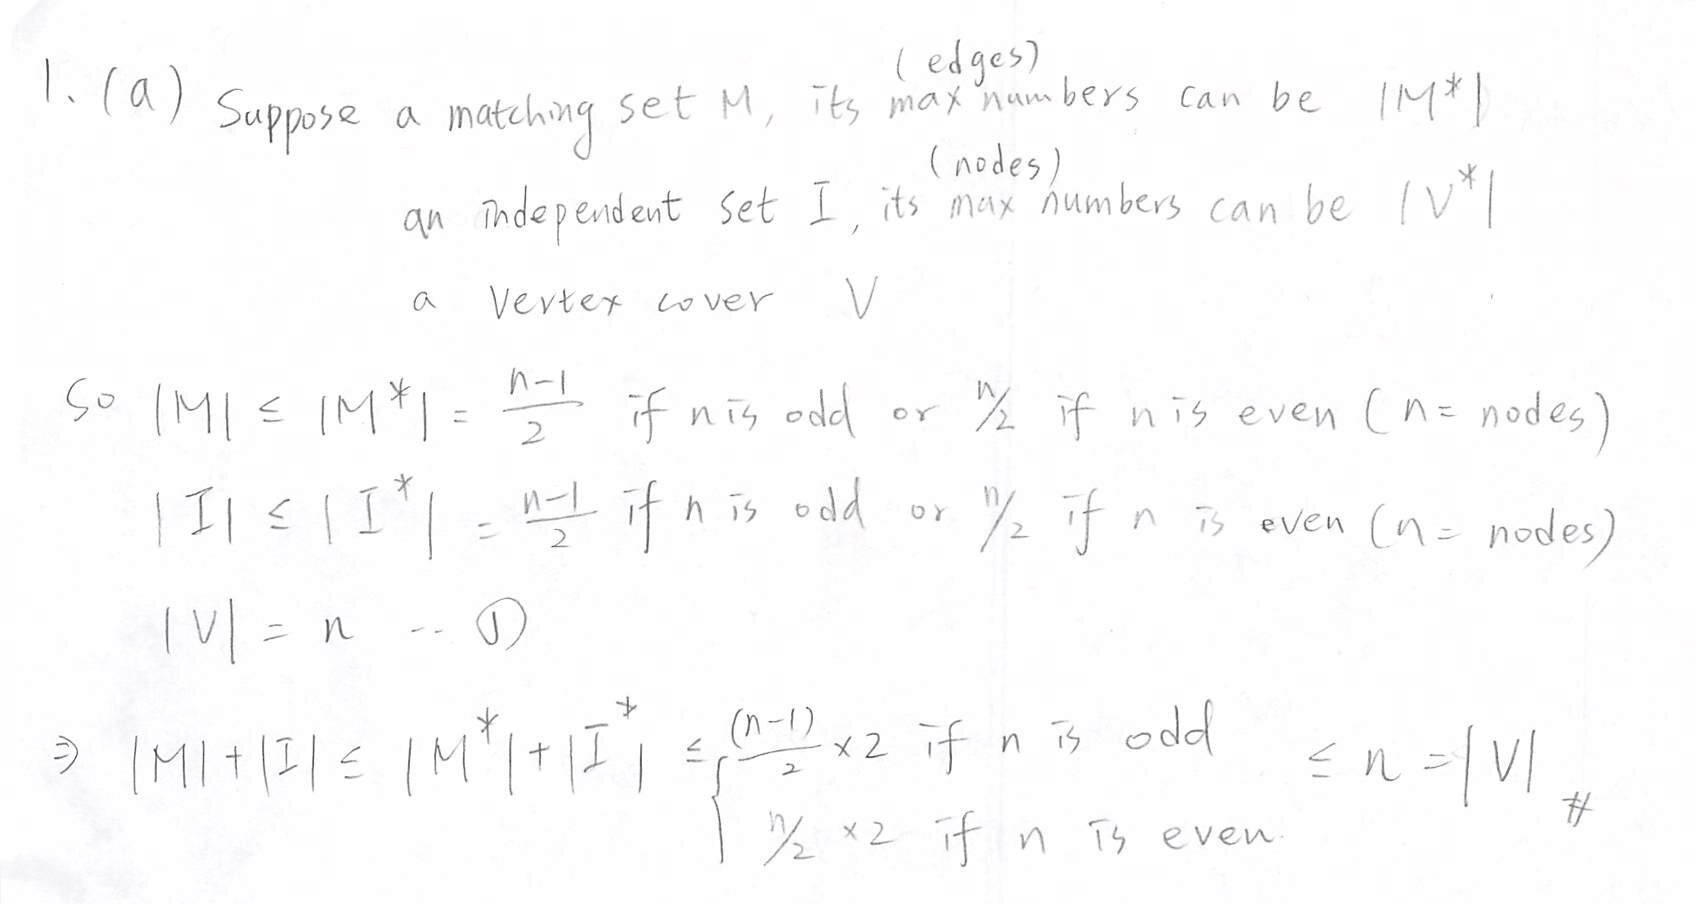 1. (a) Suppose a matching set M, its max numbers (edges) can be |M*|
an independent set I, its max numbers (nodes) can be |V*|
a vertex cover V
So |M| ≤ |M*| = (n-1)/2 if n is odd or n/2 if n is even (n = nodes)
|I| ≤ |I*| = (n-1)/2 if n is odd or n/2 if n is even (n = nodes)
|V| = n -- ①
⇒ |M| + |I| ≤ |M*| + |I*| ≤ { (n-1)/2 × 2 if n is odd ≤ n = |V| #
n/2 × 2 if n is even.